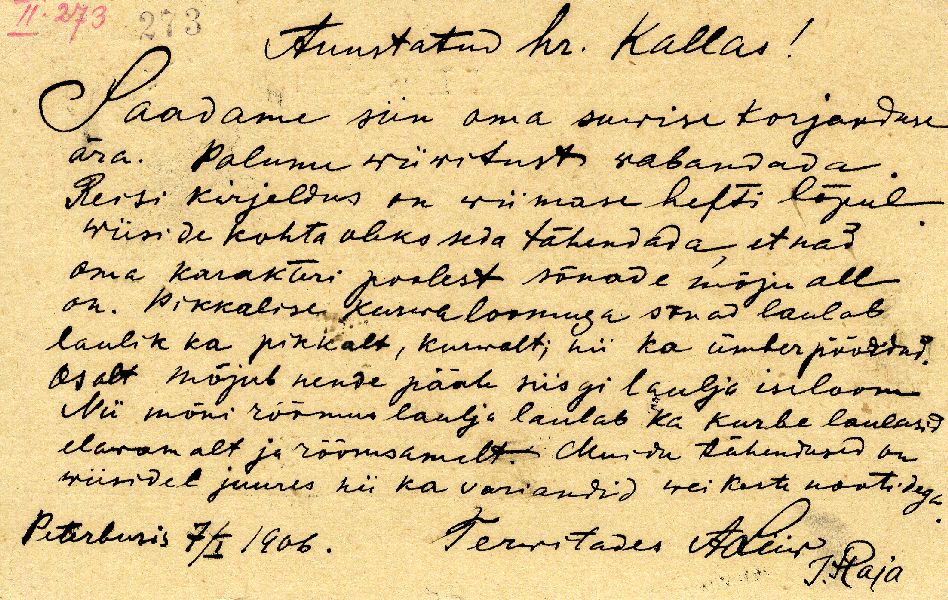 II. 273 273
Auustatud hr. Kallas!
Saadame siin oma suwise korjanduse
ära. Palume wiiwitust wabandada.
Reisi kirjeldus on wiimase hefti lõpul.
Wiiside kohta oleks seda tähendada, et nad
oma karakteri poolest sõnade mõju all
on. Pikkalise kurwaloomuga sõnad laulab
laulik ka pikkalt, kurwalt; nii ka ümberpöördud.
Osalt mõjub nende pääle siisgi laulja iseloom
Nii mõni rõõmus laulja laulab ka kurbe laulusid
elawamalt ja rõõmsamalt. Muidu tähendused on
wiisidel juures nii ka variandid weikeste nootidega.
Peterburis 7/I 1906. Terwitades
J. Raja